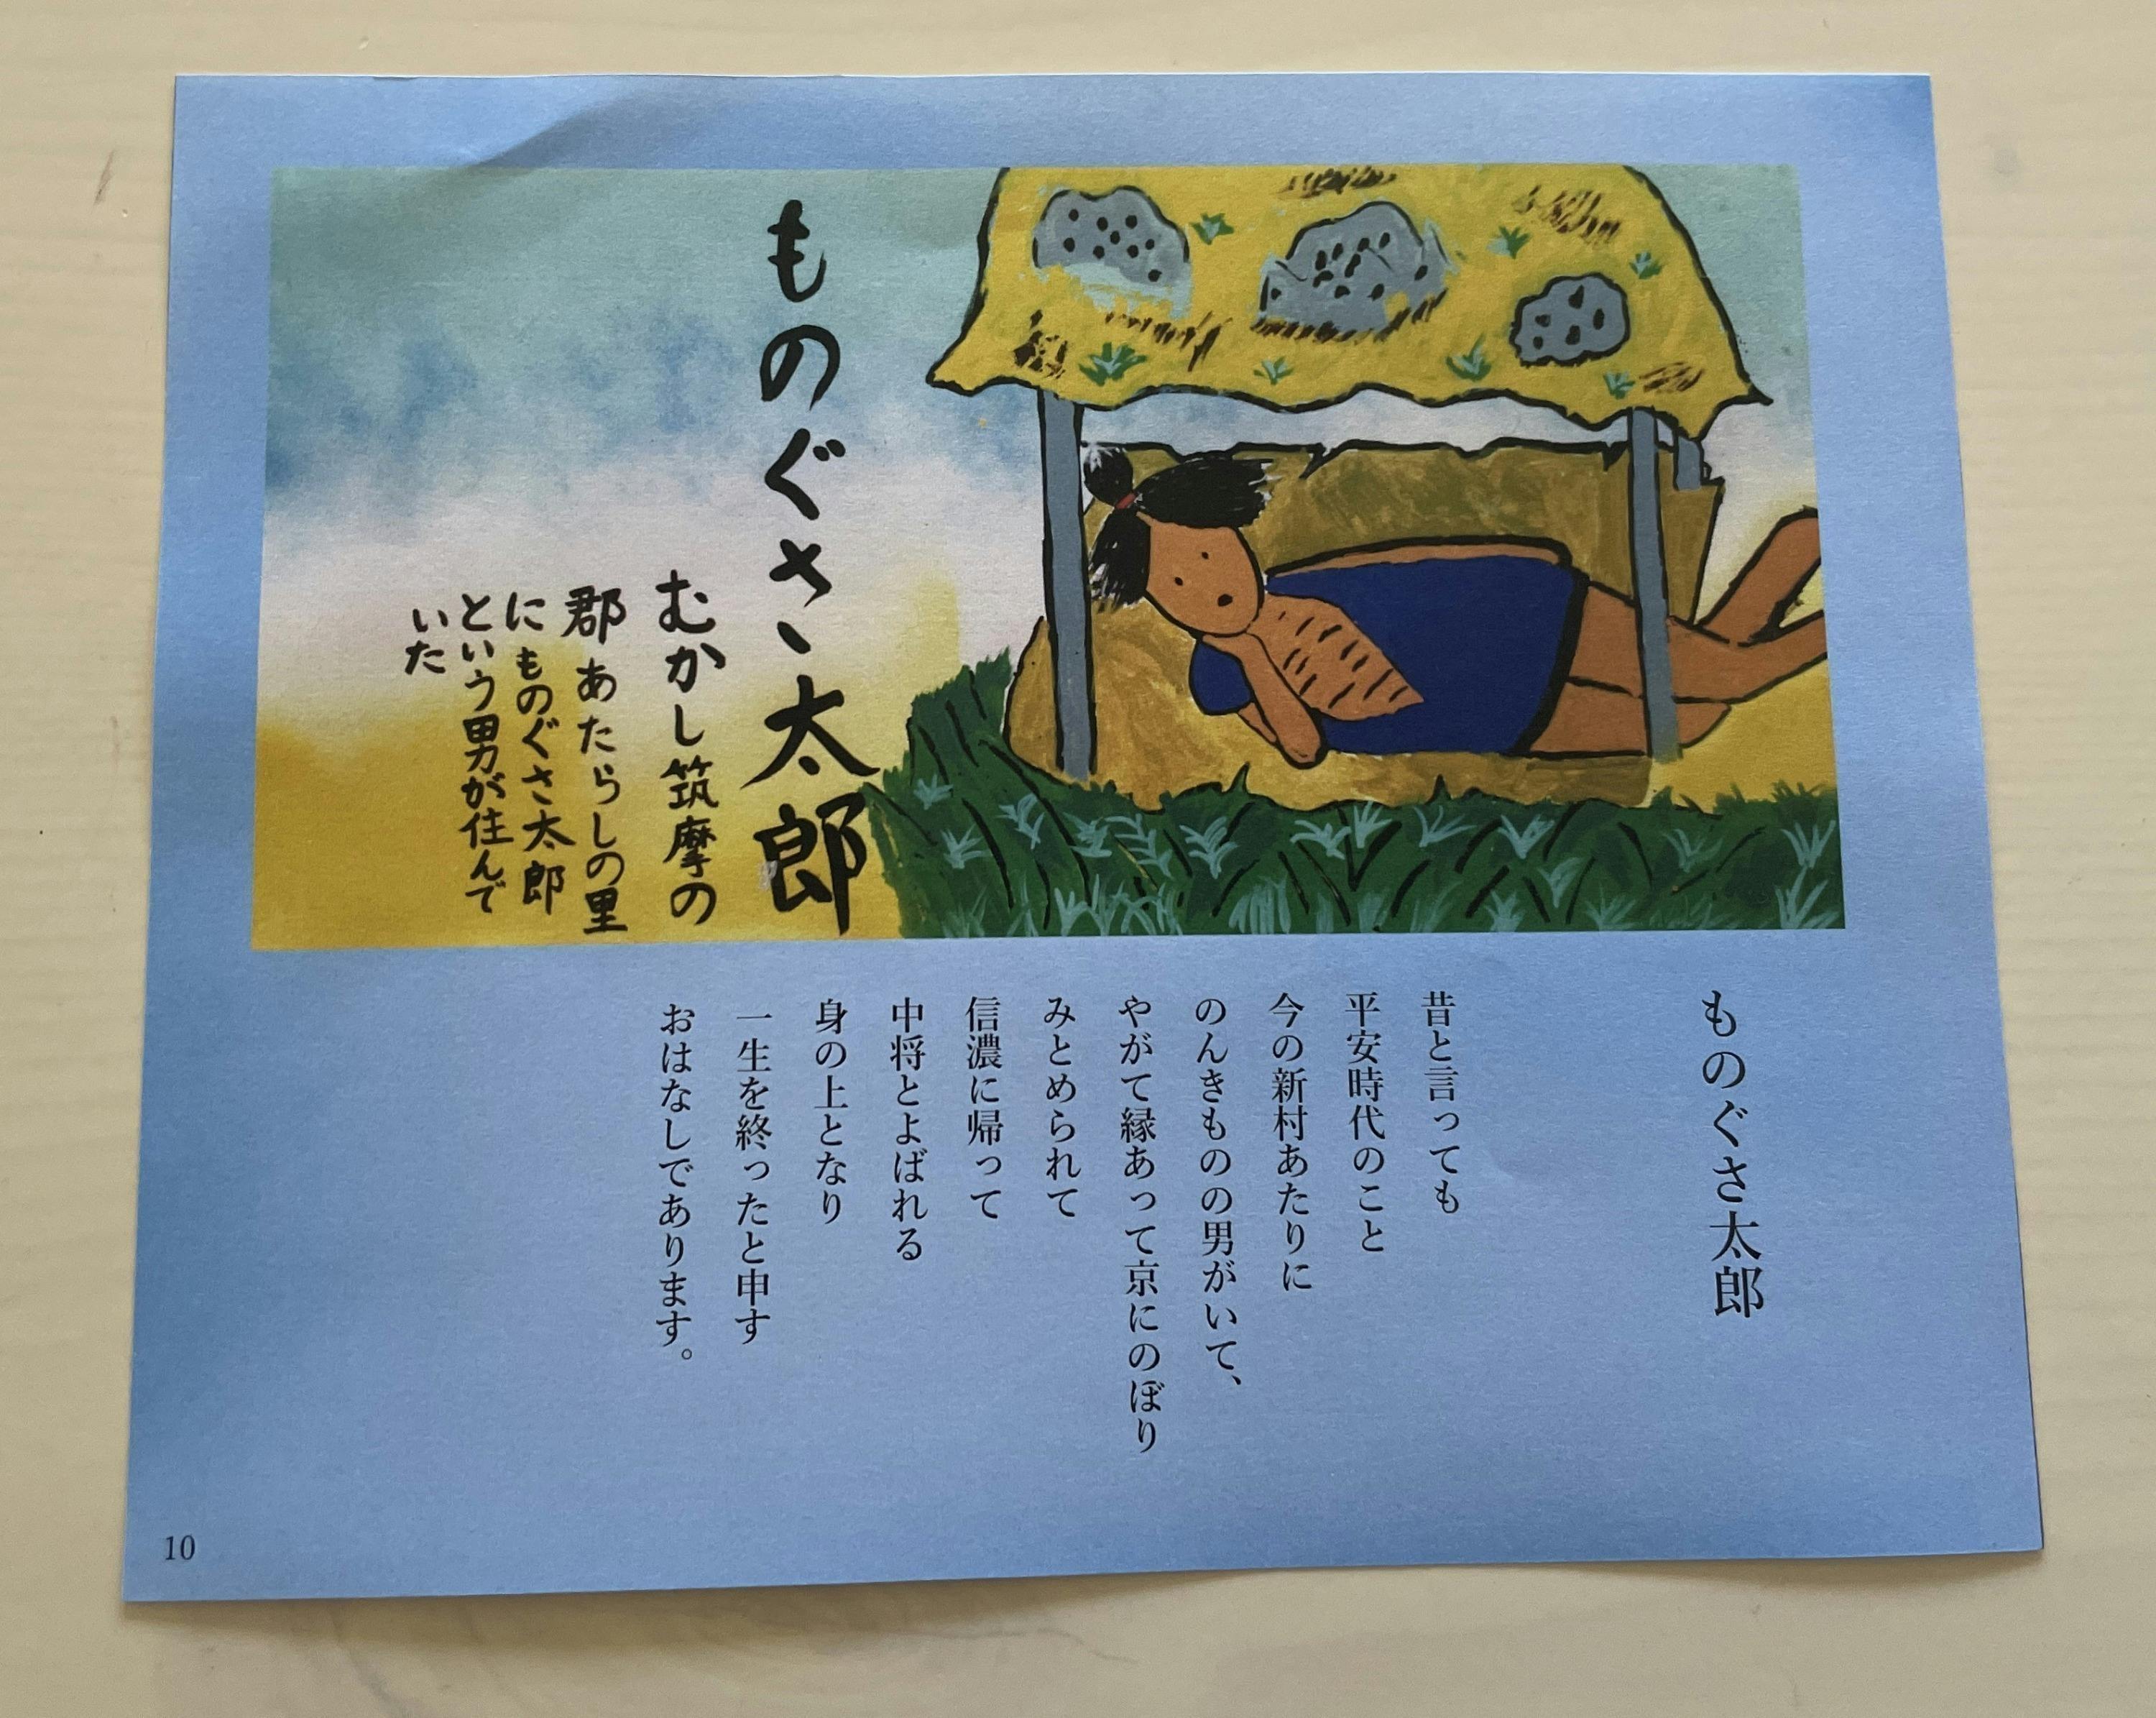 ものぐさ太郎
むかし筑摩の
郡あたらしの里
にものぐさ太郎
という男が住んで
いた
ものぐさ太郎
昔と言っても
平安時代のこと
今の新村あたりに
のんきものの男がいて、
やがて縁あって京にのぼり
みとめられて
信濃に帰って
中将とよばれる
身の上となり
一生を終ったと申す
おはなしであります。
10